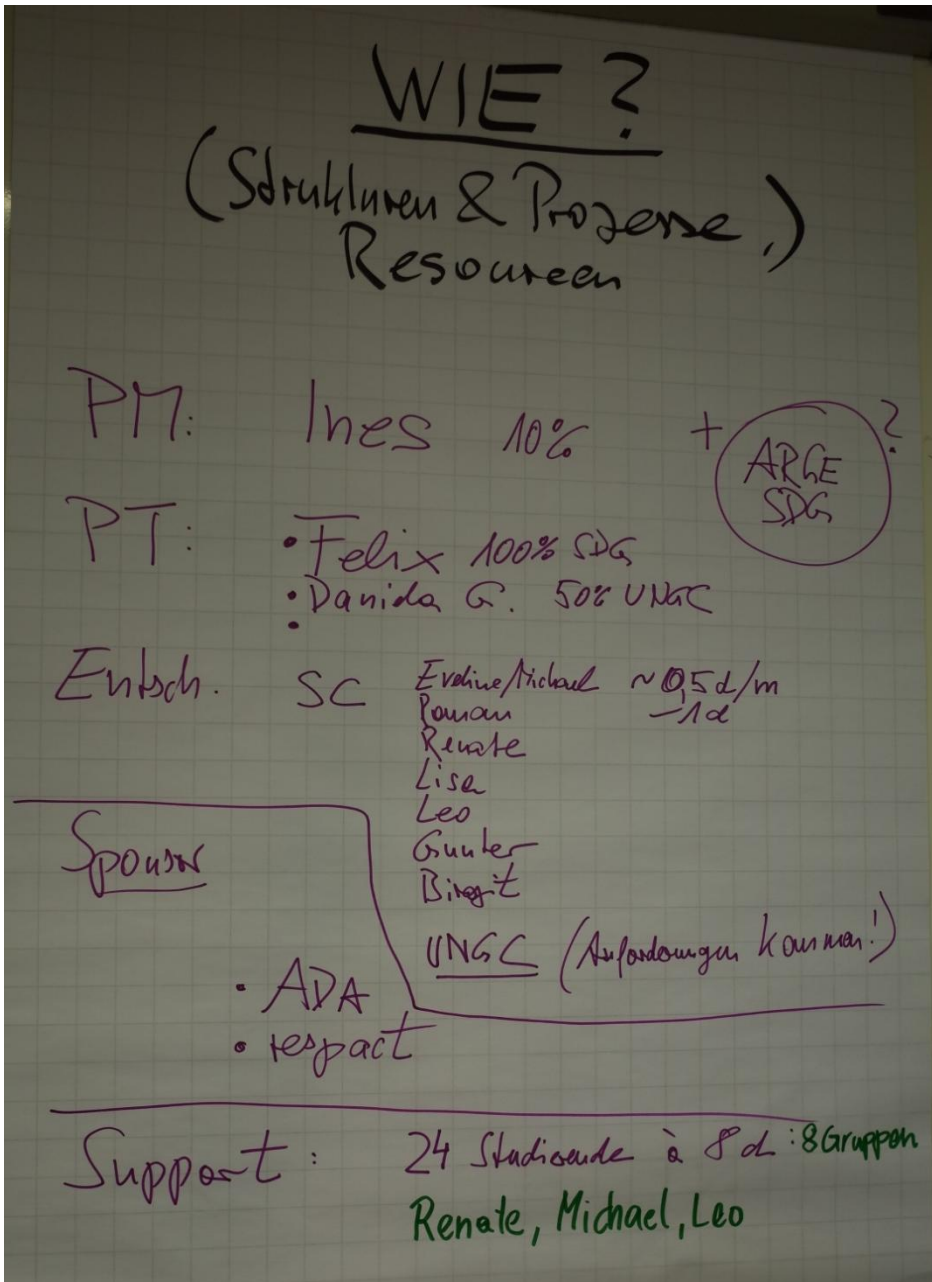 WIE ?
(Strukturen & Prozesse,)
Resourcen
PM: Ines 10% + ARGE SDG ?
PT: • Felix 100% SDG
• Danida G. 50% UNGC
•
Entsch. SC Eveline/Michael ~ 0,5 d/m
Roman – 1d
Renate
Lisa
Leo
Gunter
Birgit
UNGC (Anforderungen kommen!)
Sponsor
• ADA
• respact
Support: 24 Studierende à 8 d : 8 Gruppen
Renate, Michael, Leo